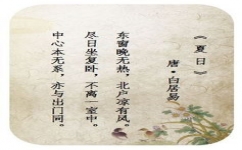 《夏日》
唐·白居易
东窗晚无热，北户凉有风。
尽日坐复卧，不离一室中。
中心本无系，亦与出门同。